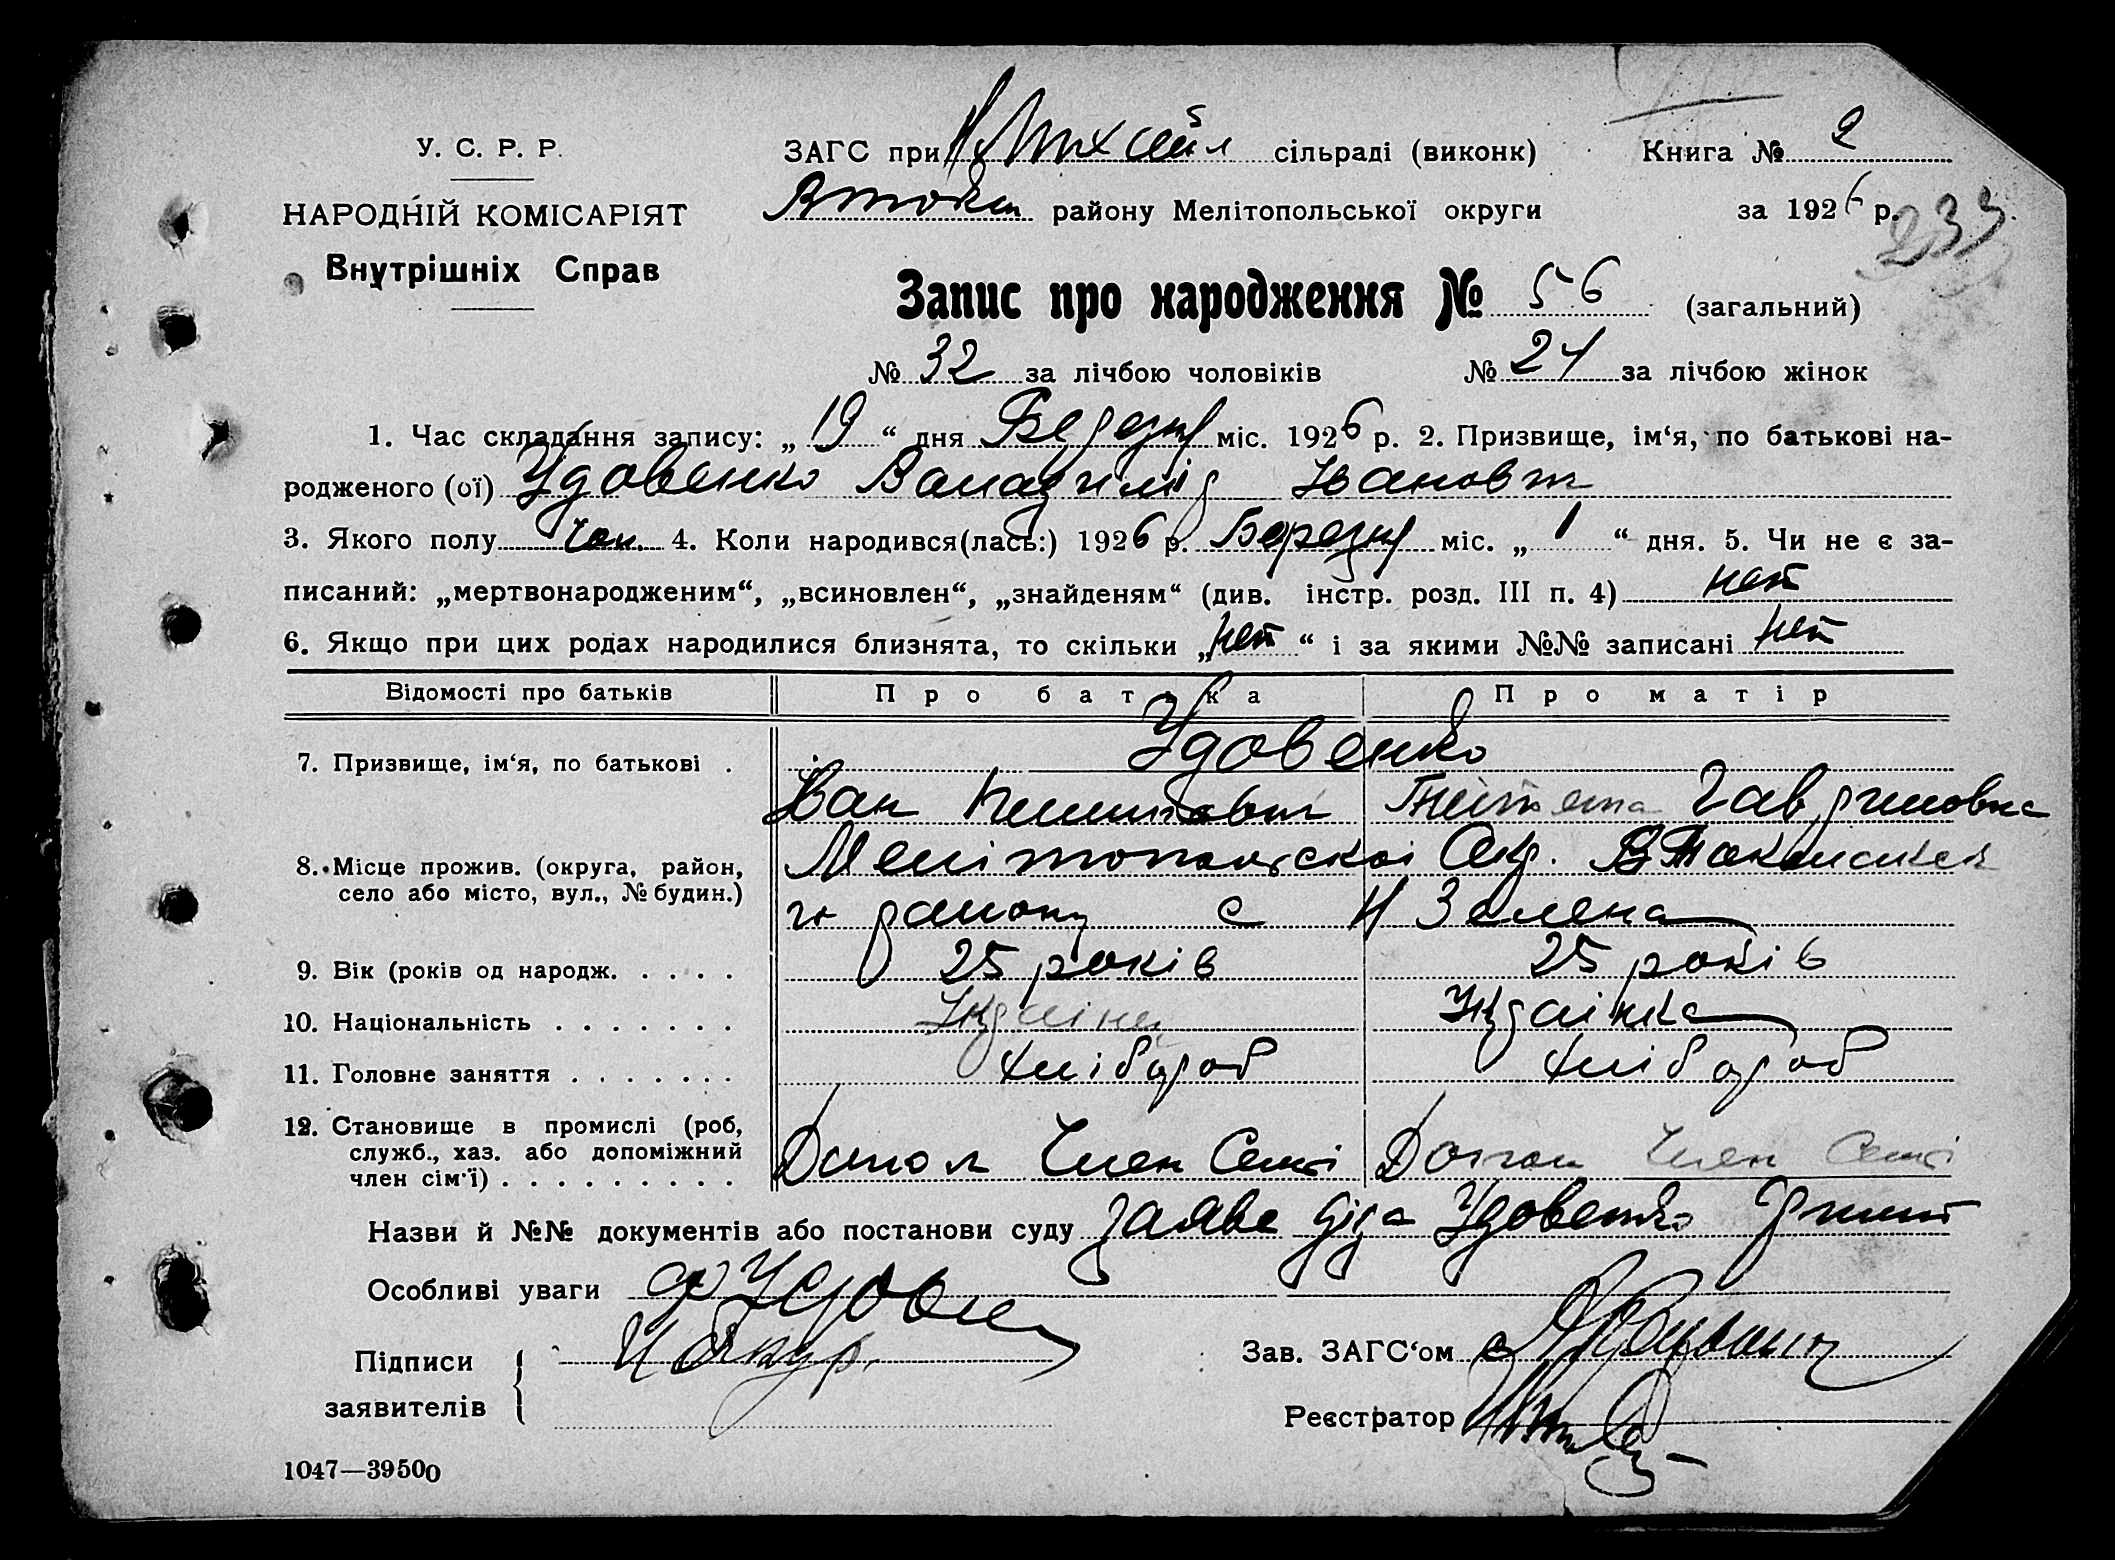 У. С. Р. Р.
НАРОДНІЙ КОМІСАРІЯТ
Внутрішніх Справ
ЗАГС при сільраді (виконк) Книга № 2
району Мелітопольської округи за 1926 р.
233
Запис про народження № 56 (загальний)
№ 32 за лічбою чоловіків № 24 за лічбою жінок
1. Час складання запису: „ 19 “ дня Березня міс. 1926 р. 2. Призвище, ім‘я, по батькові на-
родженого (ої) Удовенко Іванович
3. Якого полу Чол. 4. Коли народився(лась:) 1926 р. Березня міс. „ 1 “ дня. 5. Чи не є за-
писаний: „мертвонародженим“, „всиновлен“, „знайденям“ (див. інстр. розд. III п. 4) нет
6. Якщо при цих родах народилися близнята, то скільки „ нет “ і за якими №№ записані нет
Відомості про батьків Про батька Про матір
7. Призвище, ім‘я, по батькові . Удовенко
Іван Гавриловна
8. Місце прожив. (округа, район, село або місто, вул., № будин.) Мелітопольскоі Окр. В Токмакско
го району с Н Зелена
9. Вік (років од народж. . . . . 25 років 25 років
10. Національність . . . . . . . Украінец Украінка
11. Головне заняття . . . . . . . Хлібороб Хлібороб
12. Становище в промислі (роб, служб., хаз. або допоміжний член сім‘ї) . . . . . . . . . Допом Член Семі Допом Член Семі
Назви й №№ документів або постанови суду заява діда Удовенко
Особливі уваги
Підписи заявителів
Зав. ЗАГС‘ом
Реєстратор
1047—39500